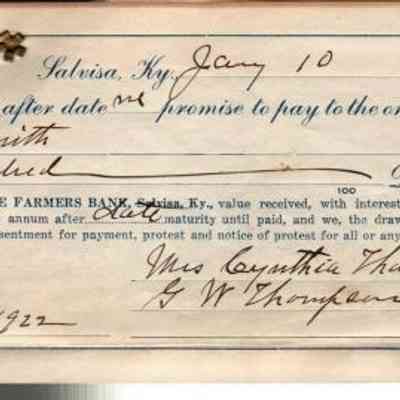 Salvisa, Ky., Jany 10
after date we promise to pay to the or
mith
dred
100
E FARMERS BANK, Salvisa, Ky., value received, with interest
annum after date maturity until paid, and we, the draw
sentment for payment, protest and notice of protest for all or any
Mrs Cynthia Tho
G W Thompson
1922